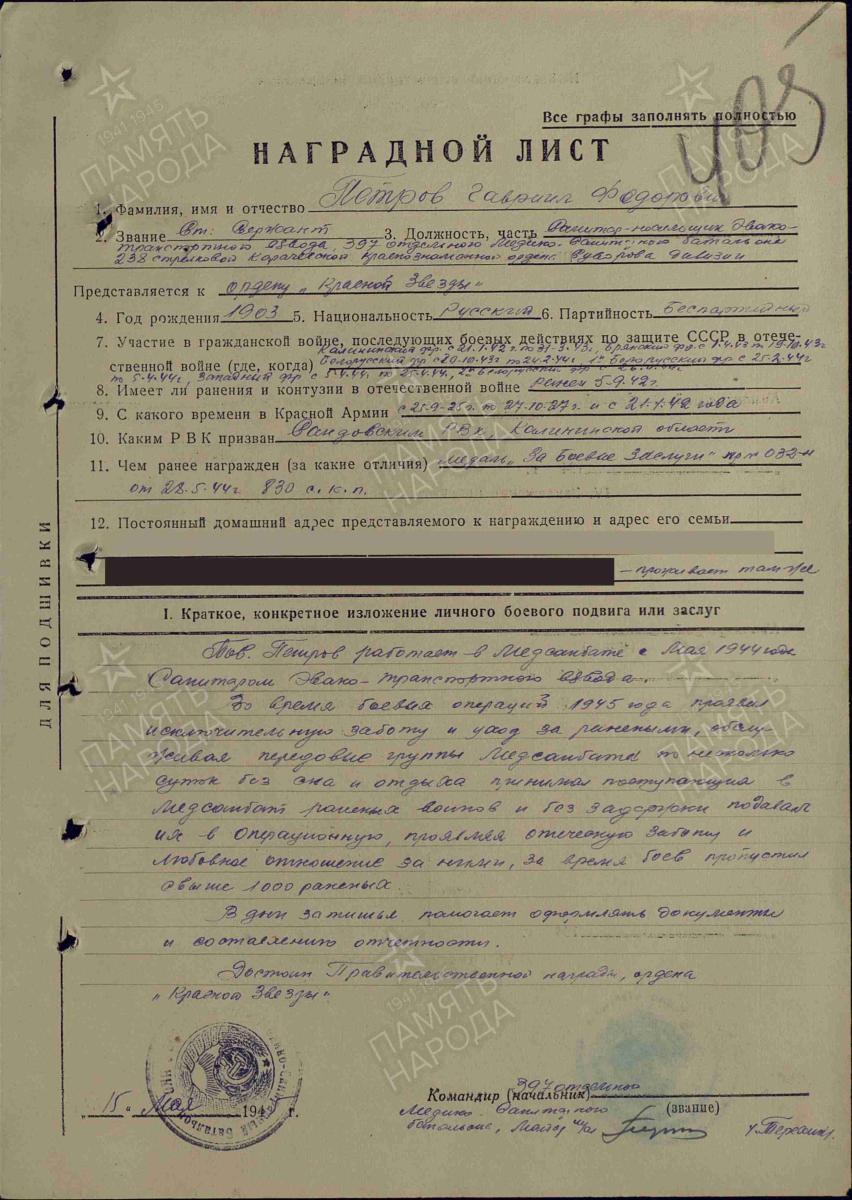 403
Все графы заполнять полностью
НАГРАДНОЙ ЛИСТ
1. Фамилия, имя и отчество Петров Гавриил Федорович
2. Звание Ст. Сержант 3. Должность, часть Санитар-носильщик Эвако-
транспортного взвода, 397 отдельного Медико-Санитарного баталиона
238 стрелковой Карачевской Краснознаменной ордена Суворова дивизии
Представляется к ордену „Красной Звезды"
4. Год рождения 1903 5. Национальность Русский 6. Партийность Беспартийный
7. Участие в гражданской войне, последующих боевых действиях по защите СССР в отече-
Калининский фр. с 21.1.42 г. по 31-3-43г. Брянский фр. с 1.4.43 по 19.10.43г
ственной войне (где, когда) Белорусский фр с 20-10.43г по 24.2.44г. 1й Белорусский фр с 25-2-44г
по 5-4-44г, Западный фр с 5.4.44г. по 25.4.44г, 2й Белорусский фр с
8. Имеет ли ранения и контузии в отечественной войне ранен 5-9.42г.
9. С какого времени в Красной Армии с 25-9-25г. по 27-10-27г. и с 21-1-42 года
10. Каким РВК призван Сандовским РВК, Калининской области
11. Чем ранее награжден (за какие отличия) медаль „За боевые Заслуги" пр № 032-н
от 28.5.44г 830 с.к.п.
12. Постоянный домашний адрес представляемого к награждению и адрес его семьи
– проживает там-же
I. Краткое, конкретное изложение личного боевого подвига или заслуг
Тов. Петров работает в Медсанбате с Мая 1944 года
Санитаром Эвако-транспортного взвода.
Во время боевых операций 1945 года проявил
исключительную заботу и уход за ранеными, обслу-
живая передовые группы Медсанбата по несколько
суток без сна и отдыха принимал поступающих в
Медсанбат раненых воинов и без задержки подавал
их в операционную, проявляя отеческую заботу и
любовное отношение за ними, за время боев пропустил
свыше 1000 раненых.
В дни затишья, помогает оформлять документы
и составлению отчетности.
Достоин Правительственной награды, ордена
„Красной Звезды"
ДЛЯ ПОДШИВКИ
„15" Мая 1945 г.
397 отдельного
Командир (начальник)
Медико-Санитарного (звание)
батальона, Майор м/сл
1941-1945
ПАМЯТЬ
НАРОДА